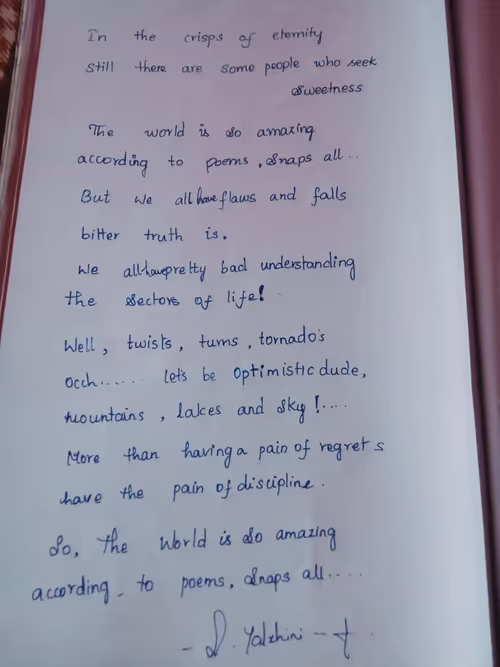 In the crisps of eternity
Still there are some people who seek
sweetness
The world is so amazing
according to poems, snaps all...
But we all have flaws and falls
bitter truth is.
We all have pretty bad understanding
the sectors of life!
Well, twists, turns, tornado's
occh...... let's be optimistic dude,
mountains, lakes and sky!....
More than having a pain of regrets
have the pain of discipline.
So, the world is so amazing
according to poems, snaps all.....
- S. Yalxhini -